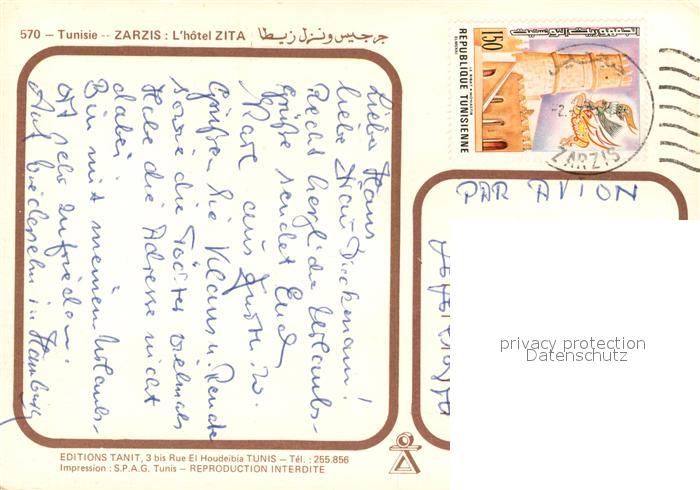 570 – Tunisie -- ZARZIS : L'hôtel ZITA جرجيس ونزل زيطا
الجمهورية التونسية
150
REPUBLIQUE TUNISIENNE
ZARZIS
PAR AVION
Lieber Hans
liebe Frau Dieckmann!
Recht herzliche Urlaubs-
grüße sendet Euch
Karl aus
Grüßen Sie Klaus u. Renate
sowie die Töchter vielmals
Habe die Adresse nicht
dabei.
Bin mit meinem Urlaubs-
ort sehr zufrieden.
Auf Wiedersehn in Hamburg
privacy protection
Datenschutz
EDITIONS TANIT, 3 bis Rue El Houdeibia TUNIS – Tél. : 255.856
Impression : S.P.A.G. Tunis – REPRODUCTION INTERDITE